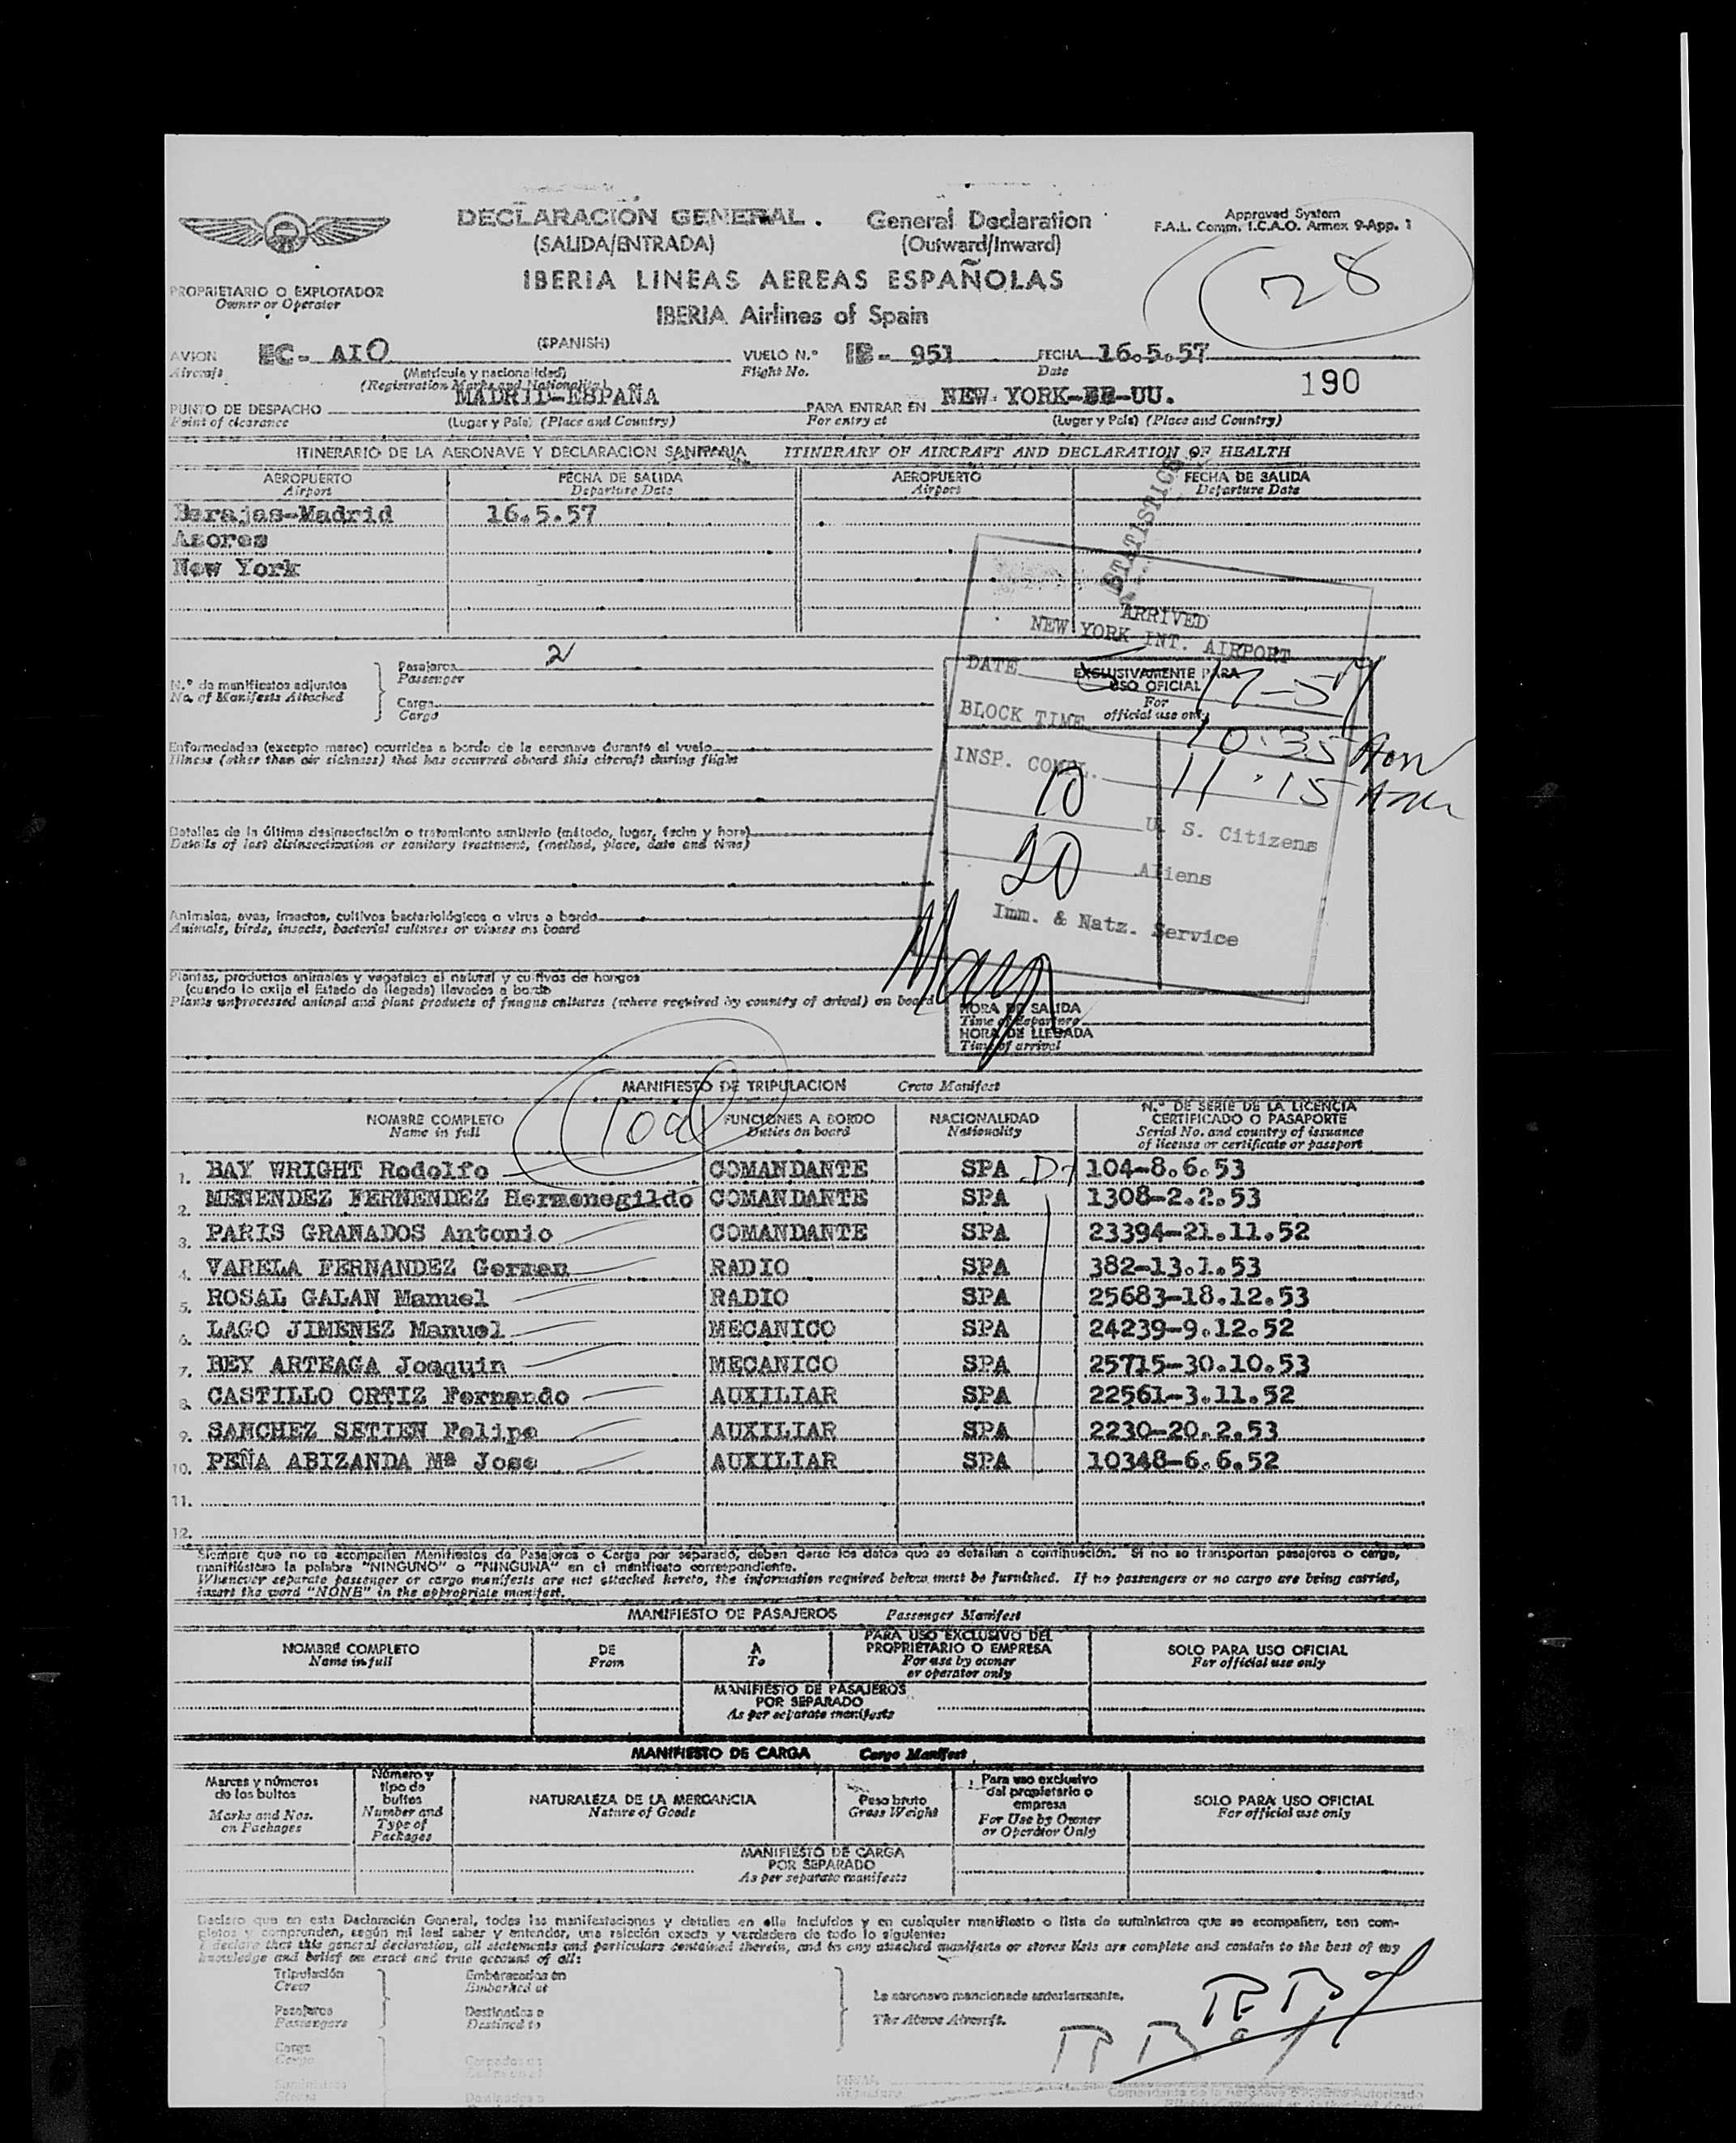 DECLARACION GENERAL. General Declaration
(SALIDA/ENTRADA) (Outward/Inward)
Approved System
F.A.L. Comm. I.C.A.O. Annex 9-App. 1
28
IBERIA LINEAS AEREAS ESPAÑOLAS
PROPRIETARIO O EXPLOTADOR
Owner or Operator
IBERIA Airlines of Spain
AVION EC- AIO (SPANISH) VUELO N.° IB- 951 FECHA 16.5.57
Aircraft (Matrícula y nacionalidad) Flight No. Date
(Registration Marks and Nationality)
190
PUNTO DE DESPACHO MADRID-ESPAÑA PARA ENTRAR EN NEW YORK-EE-UU.
Point of clearance (Lugar y País) (Place and Country) For entry at (Lugar y País) (Place and Country)
ITINERARIO DE LA AERONAVE Y DECLARACION SANITARIA ITINERARY OF AIRCRAFT AND DECLARATION OF HEALTH
AEROPUERTO FECHA DE SALIDA AEROPUERTO FECHA DE SALIDA
Airport Departure Date Airport Departure Date
Barajas-Madrid 16.5.57
Azores
New York
STATISTICS
ARRIVED
NEW YORK INT. AIRPORT
DATE 17-57
BLOCK TIME 10:35 Am
INSP. COMPL. 11:15 Am
10 U. S. Citizens
20 Aliens
Imm. & Natz. Service
EXCLUSIVAMENTE PARA
USO OFICIAL
For
official use only
N.° de manifiestos adjuntos
No. of Manifests Attached
Pasajeros 2
Passenger
Carga
Cargo
Enfermedades (excepto mareo) ocurridas a bordo de la aeronave durante el vuelo
Illness (other than air sickness) that has occurred aboard this aircraft during flight
Detalles de la última desinsectación o tratamiento sanitario (método, lugar, fecha y hora)
Details of last disinsectization or sanitary treatment, (method, place, date and time)
Animales, aves, insectos, cultivos bacteriológicos o virus a bordo
Animals, birds, insects, bacterial cultures or viuses on board
Plantas, productos animales y vegetales al natural y cultivos de hongos
(cuando lo exija el Estado de llegada) llevados a bordo
Plants unprocessed animal and plant products of fungus cultures (where required by country of arival) on board
HORA DE SALIDA
Time of departure
HORA DE LLEGADA
Time of arrival
MANIFIESTO DE TRIPULACION Crew Manifest
NOMBRE COMPLETO FUNCIONES A BORDO NACIONALIDAD N.° DE SERIE DE LA LICENCIA
CERTIFICADO O PASAPORTE
Name in full Duties on board Nationality Serial No. and country of issuance
of license or certificate or passport
1. BAY WRIGHT Rodolfo COMANDANTE SPA 104-8.6.53
2. MENENDEZ FERNENDEZ Hermenegildo COMANDANTE SPA 1308-2.2.53
3. PARIS GRANADOS Antonio COMANDANTE SPA 23394-21.11.52
4. VARELA FERNANDEZ German RADIO SPA 382-13.1.53
5. ROSAL GALAN Manuel RADIO SPA 25683-18.12.53
6. LAGO JIMENEZ Manuel MECANICO SPA 24239-9.12.52
7. REY ARTEAGA Joaquin MECANICO SPA 25715-30.10.53
8. CASTILLO ORTIZ Fernando AUXILIAR SPA 22561-3.11.52
9. SANCHEZ SETIEN Felipe AUXILIAR SPA 2230-20.2.53
10. PEÑA ABIZANDA Mª Jose AUXILIAR SPA 10348-6.6.52
11.
12.
Siempre que no se acompañen Manifiestos de Pasajeros o Carga por separado, deben darse los datos que se detallan a continuación. Si no se transportan pasajeros o carga,
manifiéstese la palabra "NINGUNO" o "NINGUNA" en el manifiesto correspondiente.
Whenever separate passenger or cargo manifests are not attached hereto, the information required below must be furnished. If no passangers or no cargo are being carried,
insert the word "NONE" in the appropriate manifest.
MANIFIESTO DE PASAJEROS Passenger Manifest
NOMBRE COMPLETO DE A PARA USO EXCLUSIVO DEL
PROPRIETARIO O EMPRESA SOLO PARA USO OFICIAL
Name in full From To For use by owner
or operator only For official use only
MANIFIESTO DE PASAJEROS
POR SEPARADO
As per separate manifests
MANIFIESTO DE CARGA Cargo Manifest
Marcas y números
de los bultos
Marks and Nos.
on Packages
Número y
tipo de
bultos
Number and
Type of
Packages
NATURALEZA DE LA MERCANCIA
Nature of Goods
Peso bruto
Gross Weight
Para uso exclusivo
del propietario o
empresa
For Use by Owner
or Operator Only
SOLO PARA USO OFICIAL
For official use only
MANIFIESTO DE CARGA
POR SEPARADO
As per separate manifests
Declaro que en esta Declaración General, todas las manifestaciones y detalles en ella incluídos y en cualquier manifiesto o lista de suministros que se acompañen, son com-
pletos y comprenden, según mi leal saber y entender, una relación exacta y verdadera de todo lo siguiente:
I declare that this general declaration, all statements and particulars contained therein, and in any attached manifests or stores lists are complete and contain to the best of my
knowledge and belief an exact and true account of all:
Tripulación
Crew
Pasajeros
Passengers
Carga
Cargo
Embarcados en
Embarked at
Destinados a
Destined to
La aeronave mencionada anteriormente.
The Above Aircraft.